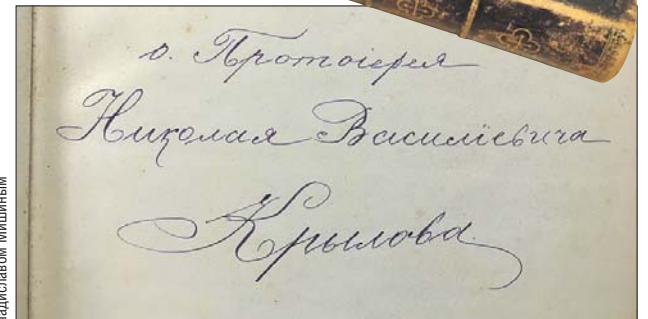 о. Протоіерея
Николая Василіевича
Крылова
адиславом Мишиным